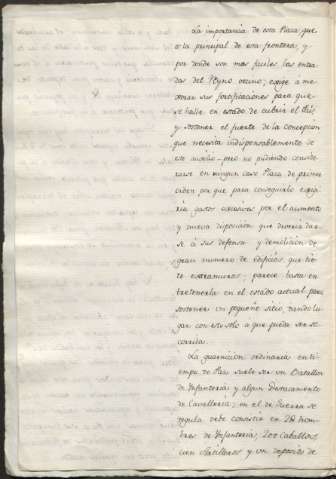 La importancia de esta Plaza que
es la principal de esta frontera, y
por donde son mas faciles las entra
das del Reyno vecino; exige a me
jorar sus fortificaciones para que
se halle en estado de cubrir el Pais
y sostener el fuerte de la Concepcion
que necesita indispensablemente de
este auxilio - pero no pudiendo conside
rarse en ningun caso Plaza de primer
orden por que para conseguirlo exigi
ria gastos excesivos por el aumento
y nueva disposicion que deveria dar
se á sus defensas y demolicion de
gran numero de edificios que tie
ne extramuros; parece basta en
tretenerla en el estado actual para
sostener un pequeño sitio, dando lu
gar con esto solo a que pueda ser so
corrida.
La guarnicion ordinaria en ti
empo de Paz suele ser un Batallon
de Infanteria y algun Destacamento
de Cavalleria; en el de Guerra se
regula debe consistir en hom
bres de Infanteria, 200 Caballos
cien Artilleros y un deposito de